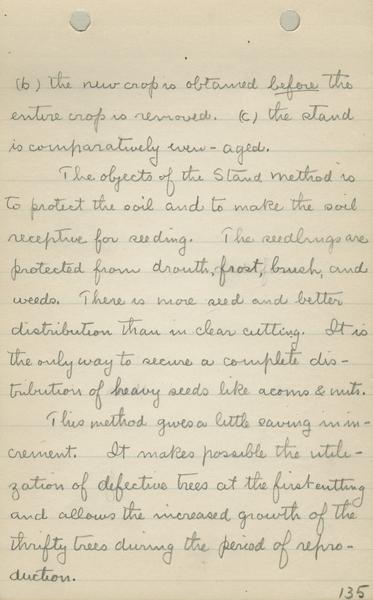 (b) the new crop is obtained before the
entire crop is removed. (c) the stand
is comparatively even-aged.
The objects of the Stand Method is
to protect the soil and to make the soil
receptive for seeding. The seedlings are
protected from drouth, frost, brush, and
weeds. There is more seed and better
distribution than in clear cutting. It is
the only way to secure a complete dis-
tribution of heavy seeds like acorns & nuts.
This method gives a little saving in in-
crement. It makes possible the utili-
zation of defective trees at the first cutting
and allows the increased growth of the
thrifty trees during the period of repro-
duction.
135